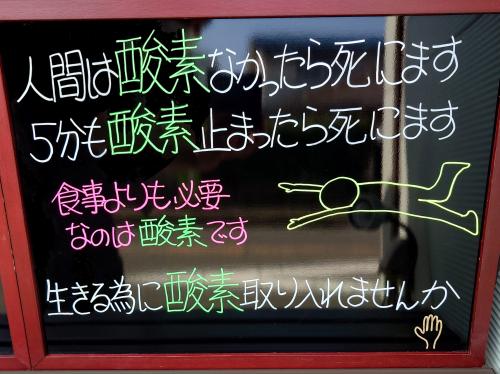 人間は酸素なかったら死にます
5分も酸素止まったら死にます
食事よりも必要
なのは酸素です
生きる為に酸素取り入れませんか